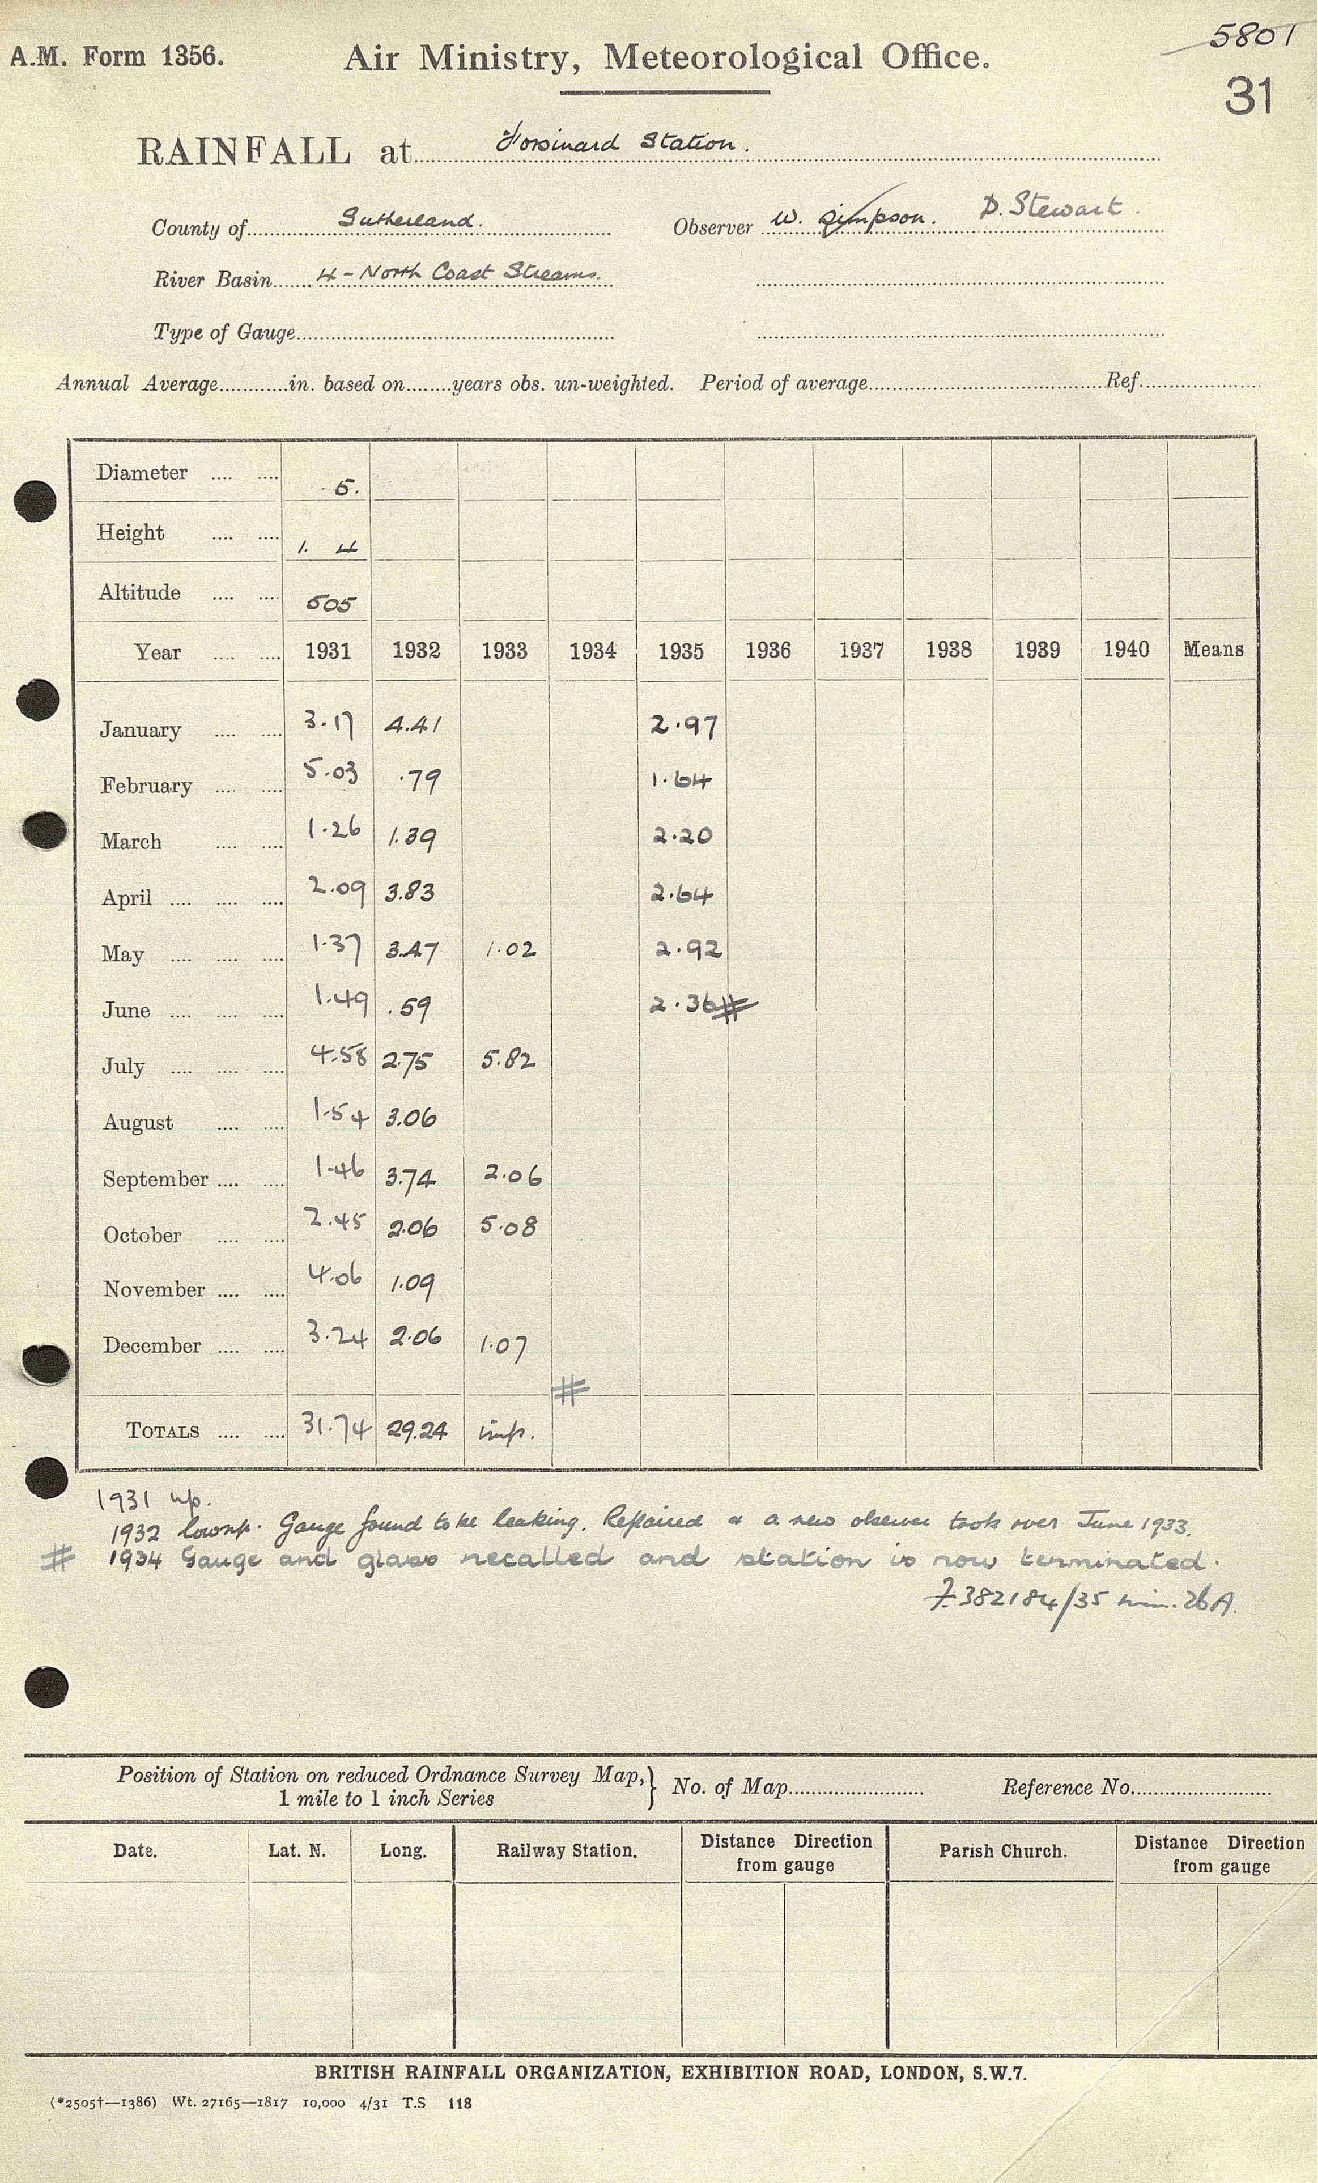 5801
A.M. Form 1356. Air Ministry, Meteorological Office.
31
RAINFALL at Forsinard Station.
County of Sutherland. Observer W. Simpson. D. Stewart.
River Basin 4 - North Coast Streams.
Type of Gauge
Annual Average in. based on years obs. un-weighted. Period of average Ref
Diameter 5.
Height 1. 4
Altitude 505
Year 1931 1932 1933 1934 1935 1936 1937 1938 1939 1940 Means
January 3.17 4.41 2.97
February 5.03 .79 1.64
March 1.26 1.39 2.20
April 2.09 3.83 2.64
May 1.37 3.47 1.02 2.92
June 1.49 .59 2.36 #
July 4.58 2.75 5.82
August 1.54 3.06
September 1.46 3.74 2.06
October 2.45 2.06 5.08
November 4.06 1.09
December 3.24 2.06 1.07
#
TOTALS 31.74 29.24 imp.
1931 up.
1932 Gauge found to be leaking. Repaired & a new observer took over June 1933.
# 1934 Gauge and glass recalled and station is now terminated.
F.382184/35 min. 26A.
Position of Station on reduced Ordnance Survey Map, } No. of Map Reference No.
1 mile to 1 inch Series
Date. Lat. N. Long. Railway Station. Distance Direction from gauge Parish Church. Distance Direction from gauge
BRITISH RAINFALL ORGANIZATION, EXHIBITION ROAD, LONDON, S.W.7.
(*2505†—1386) Wt. 27165—1817 10,000 4/31 T.S 118